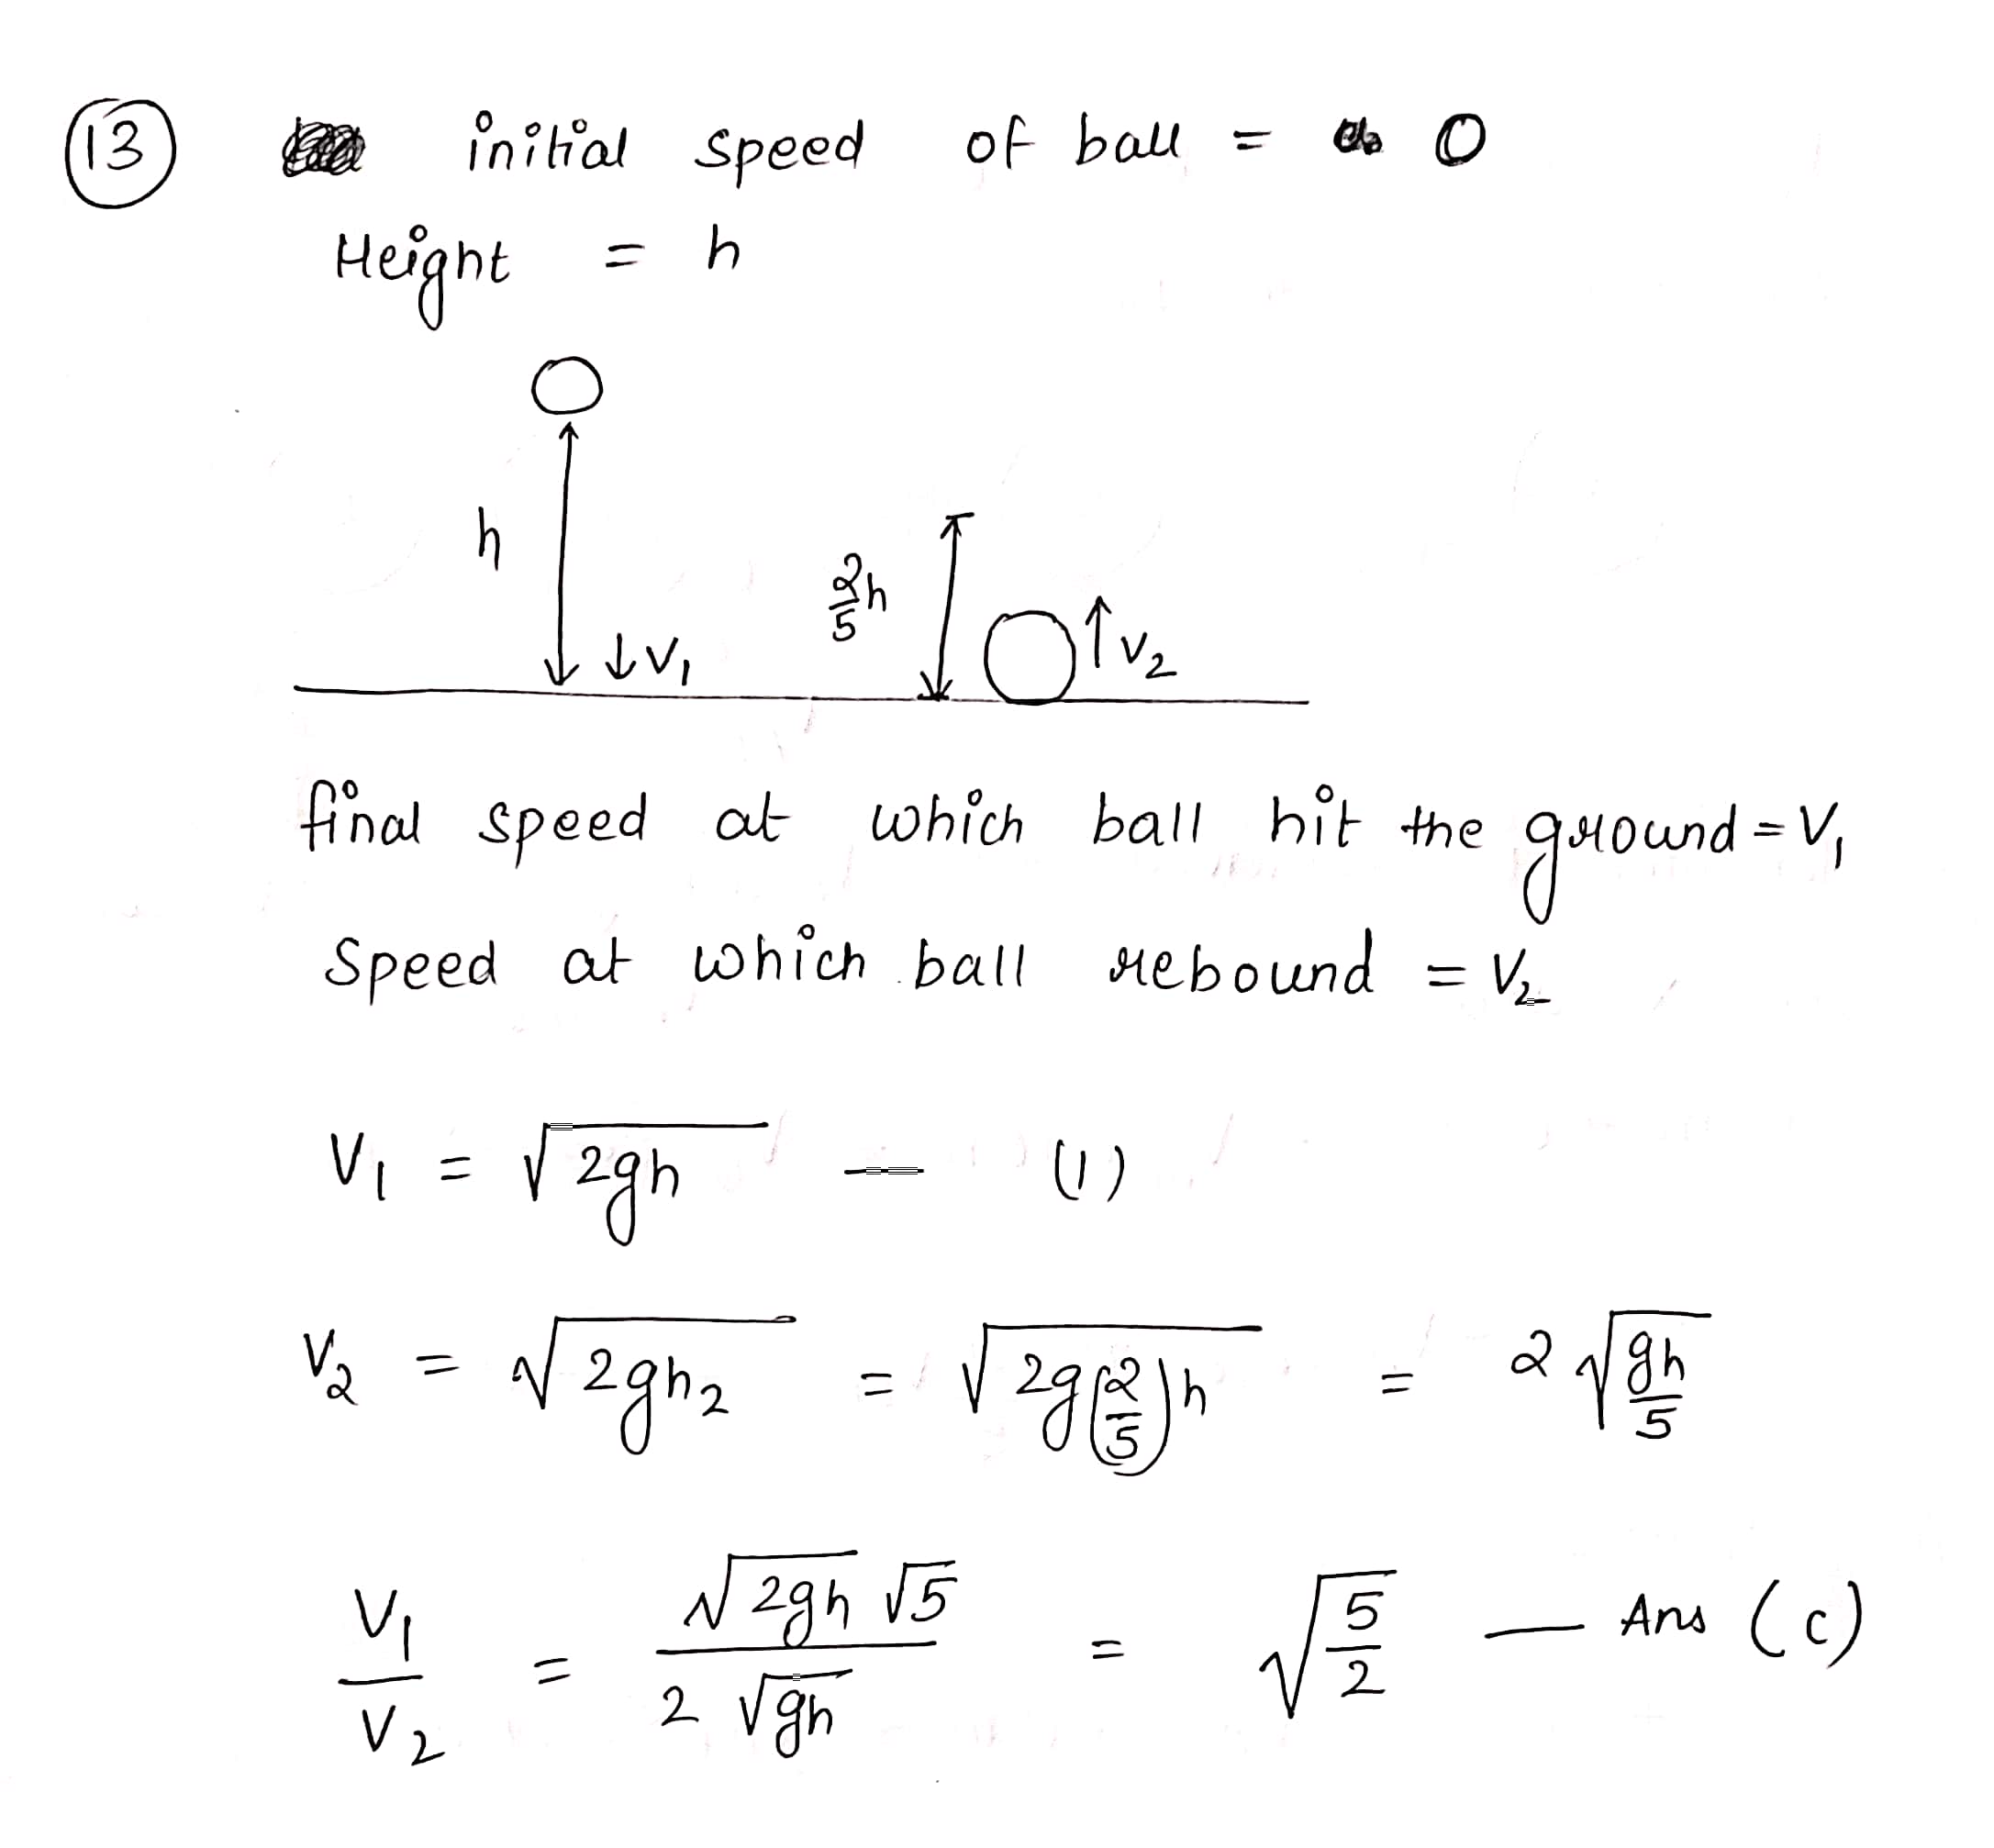 13 initial speed of ball = 0
Height = h
h
2/5 h
↓V₁
↑V₂
final speed at which ball hit the ground = V₁
Speed at which ball rebound = V₂
V₁ = √2gh — (1)
V₂ = √2gh₂ = √2g(2/5)h = 2√gh/5
V₁/V₂ = √2gh √5 / 2√gh = √5/2 — Ans (c)